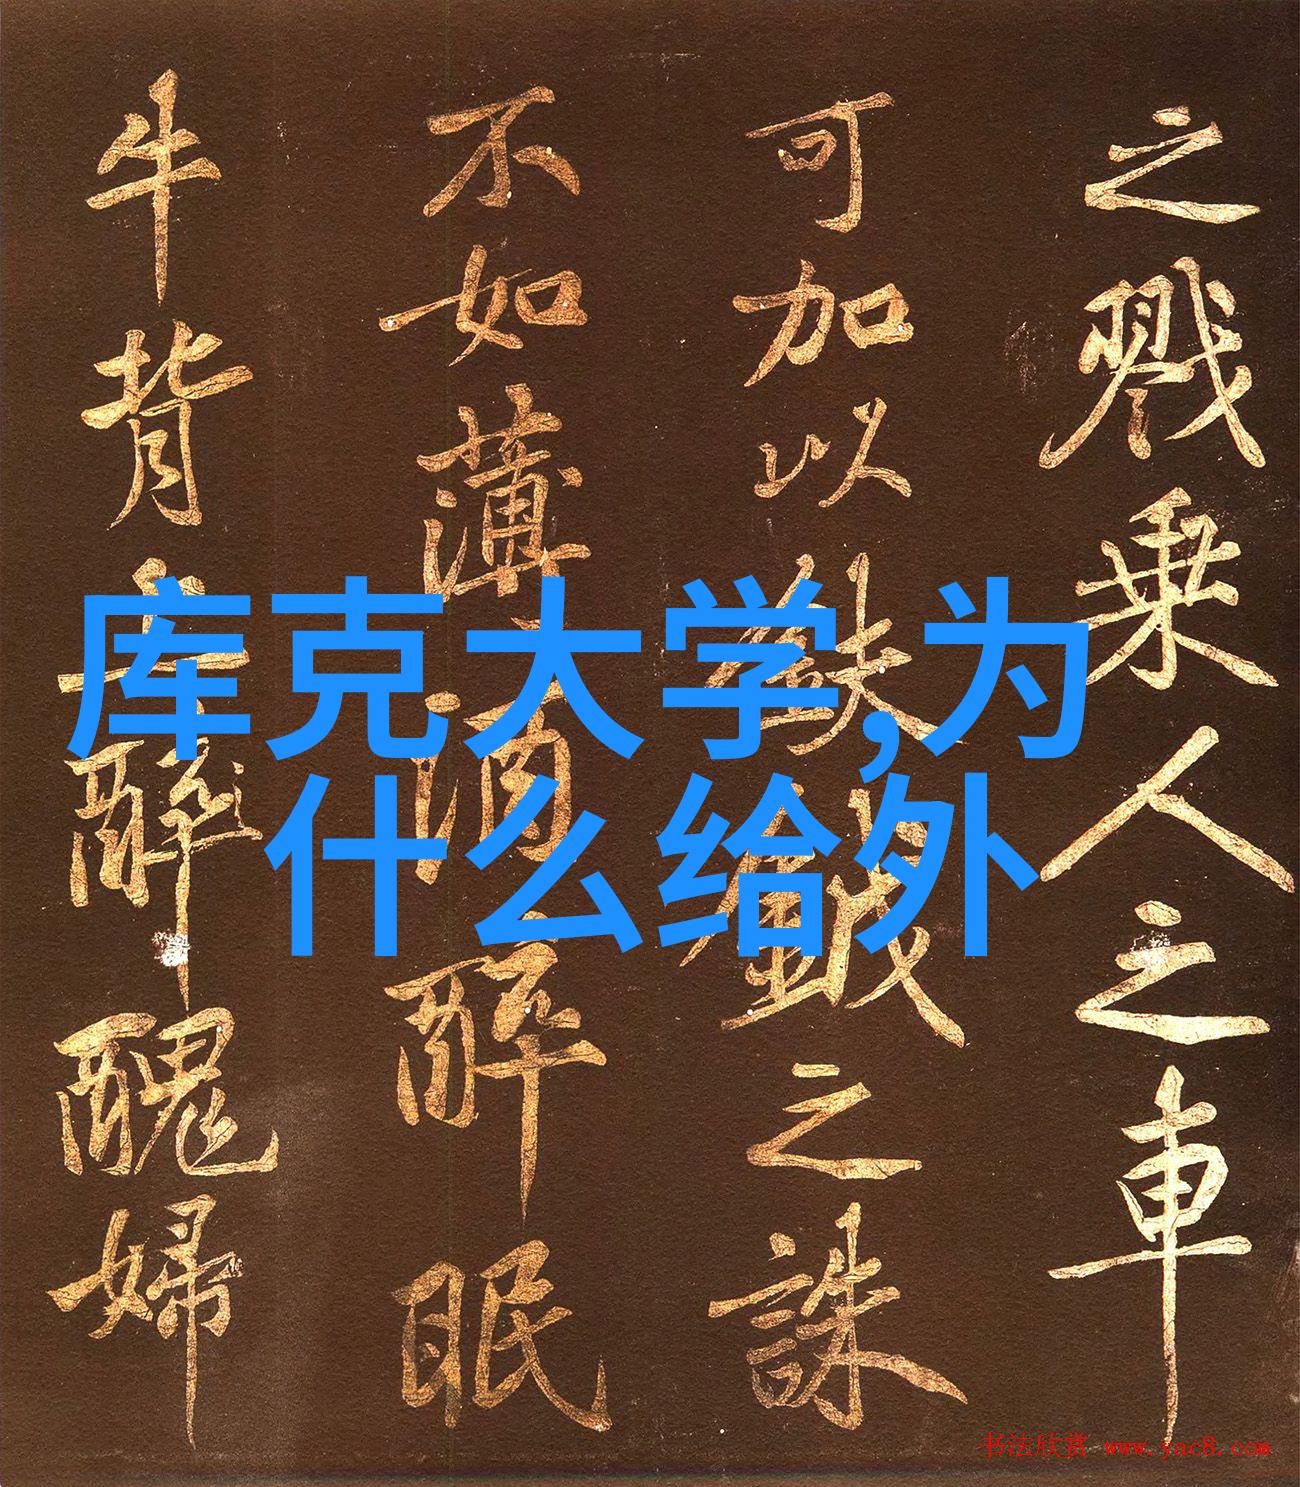 库克大学,为
什么给外
之戮乘人之車
可加以鈇鉞之誅
不如薄薄酒醉眠
牛背上醉醜婦
书法欣赏 www.yac8.com